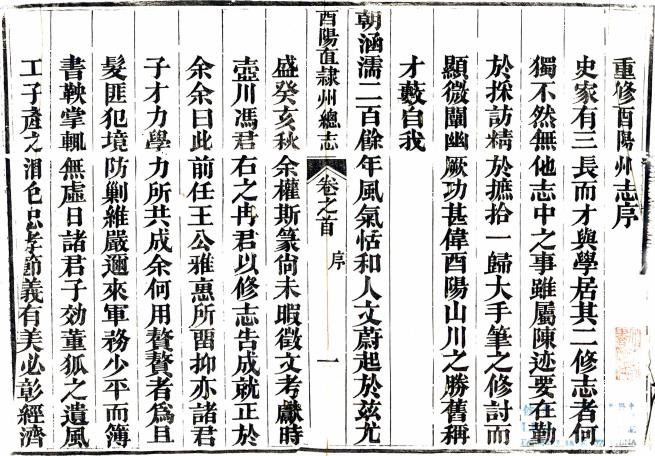 重修酉陽州志序
史家有三長而才與學居其二修志者何
獨不然無他志中之事雖屬陳迹要在勤
於採訪精於摭拾一歸大手筆之修討而
顯微闡幽厥功甚偉酉陽山川之勝舊稱
才藪自我
朝涵濡二百餘年風氣恬和人文蔚起於兹尤
酉陽直隷州總志 卷之首 序 一
盛癸亥秋余權斯篆尙未暇徵文考獻時
壺川馮君右之冉君以修志告成就正於
余余曰此前任王公雅惠所畱抑亦諸君
子才力學力所共成余何用贅贅者爲且
髮匪犯境防剿維嚴邇來軍務少平而簿
書鞅掌輒無虛日諸君子効董狐之遺風
工子産之潤色忠孝節義有美必彰經濟